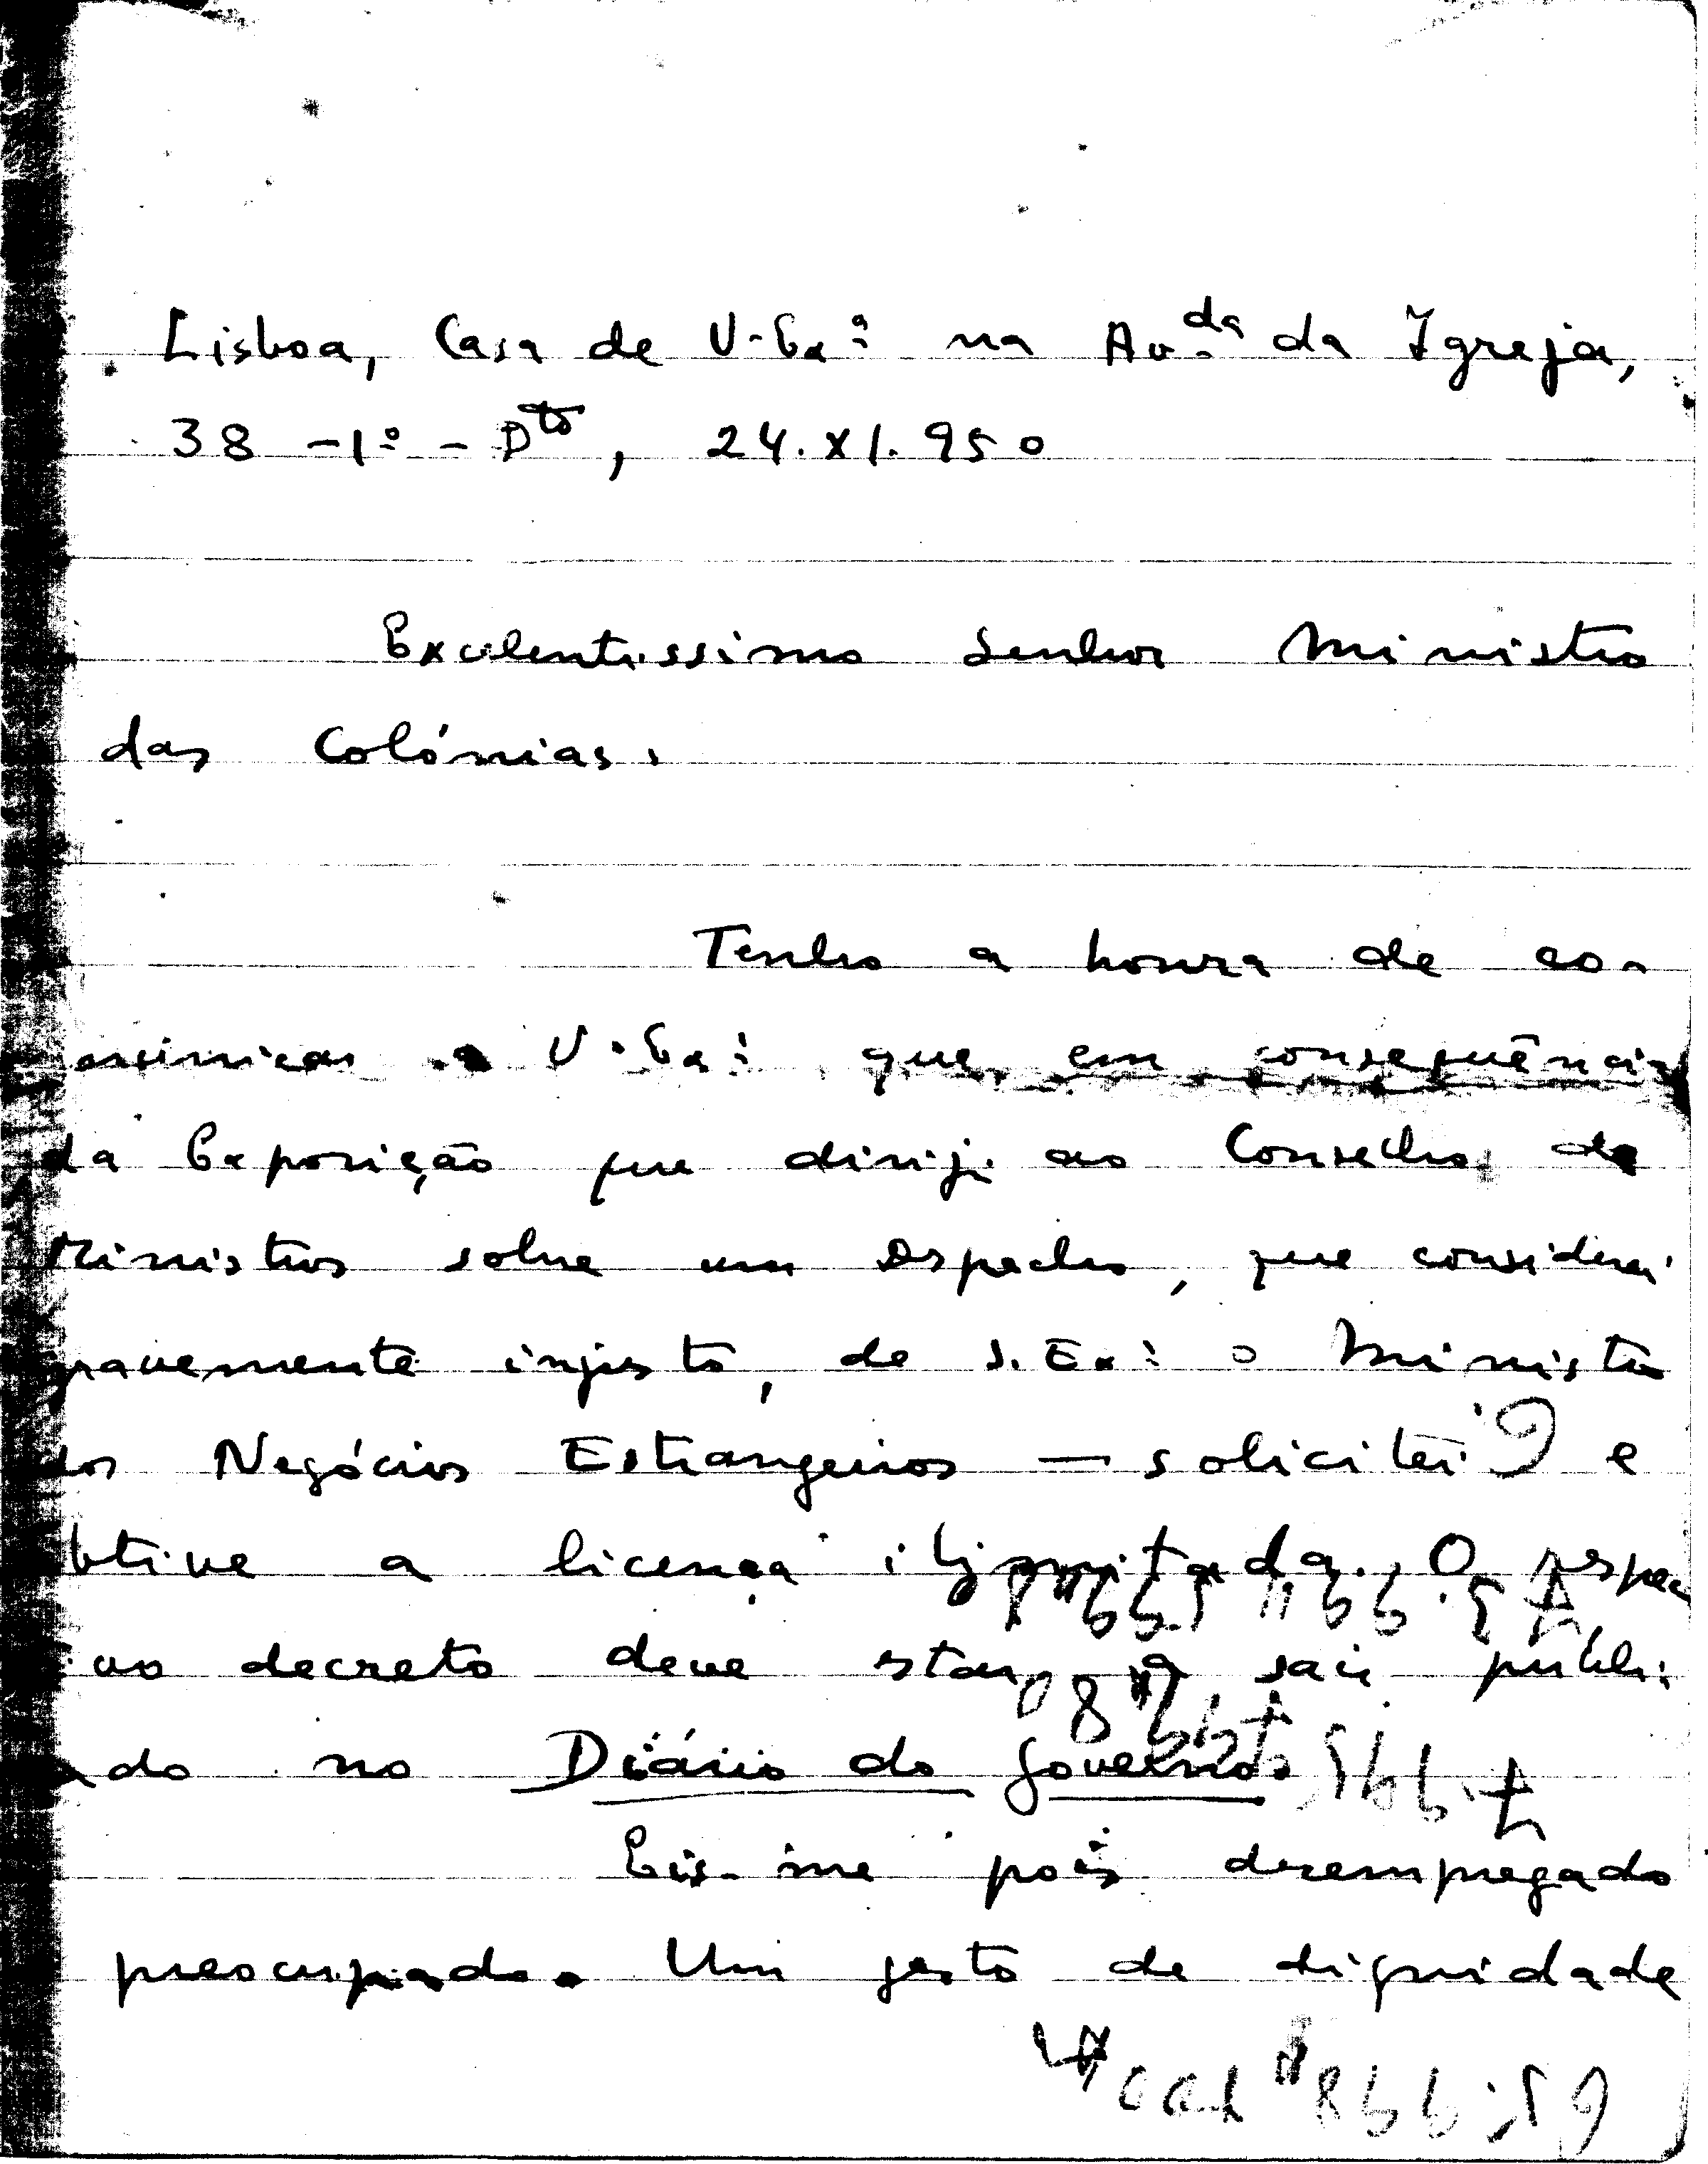 Lisboa, Casa de V. Exª na Av.da da Igreja,
38 - 1º - Dto, 24.XI.950
Excelentissimo Senhor Ministro
das Colónias,
Tenho a honra de co-
municar a V. Exª que em consequência
da Exposição que dirigi ao Conselho de
Ministros sobre um Despacho, que considerei
gravemente injusto, de S. Exª o Ministro
dos Negócios Estrangeiros — solicitei e
btive a licença ilimitada. O respec
ivo decreto deve estar a sair publi
ado no Diário do Governo.
Eis-me pois desempregado
preocupado. Um gesto de dignidade